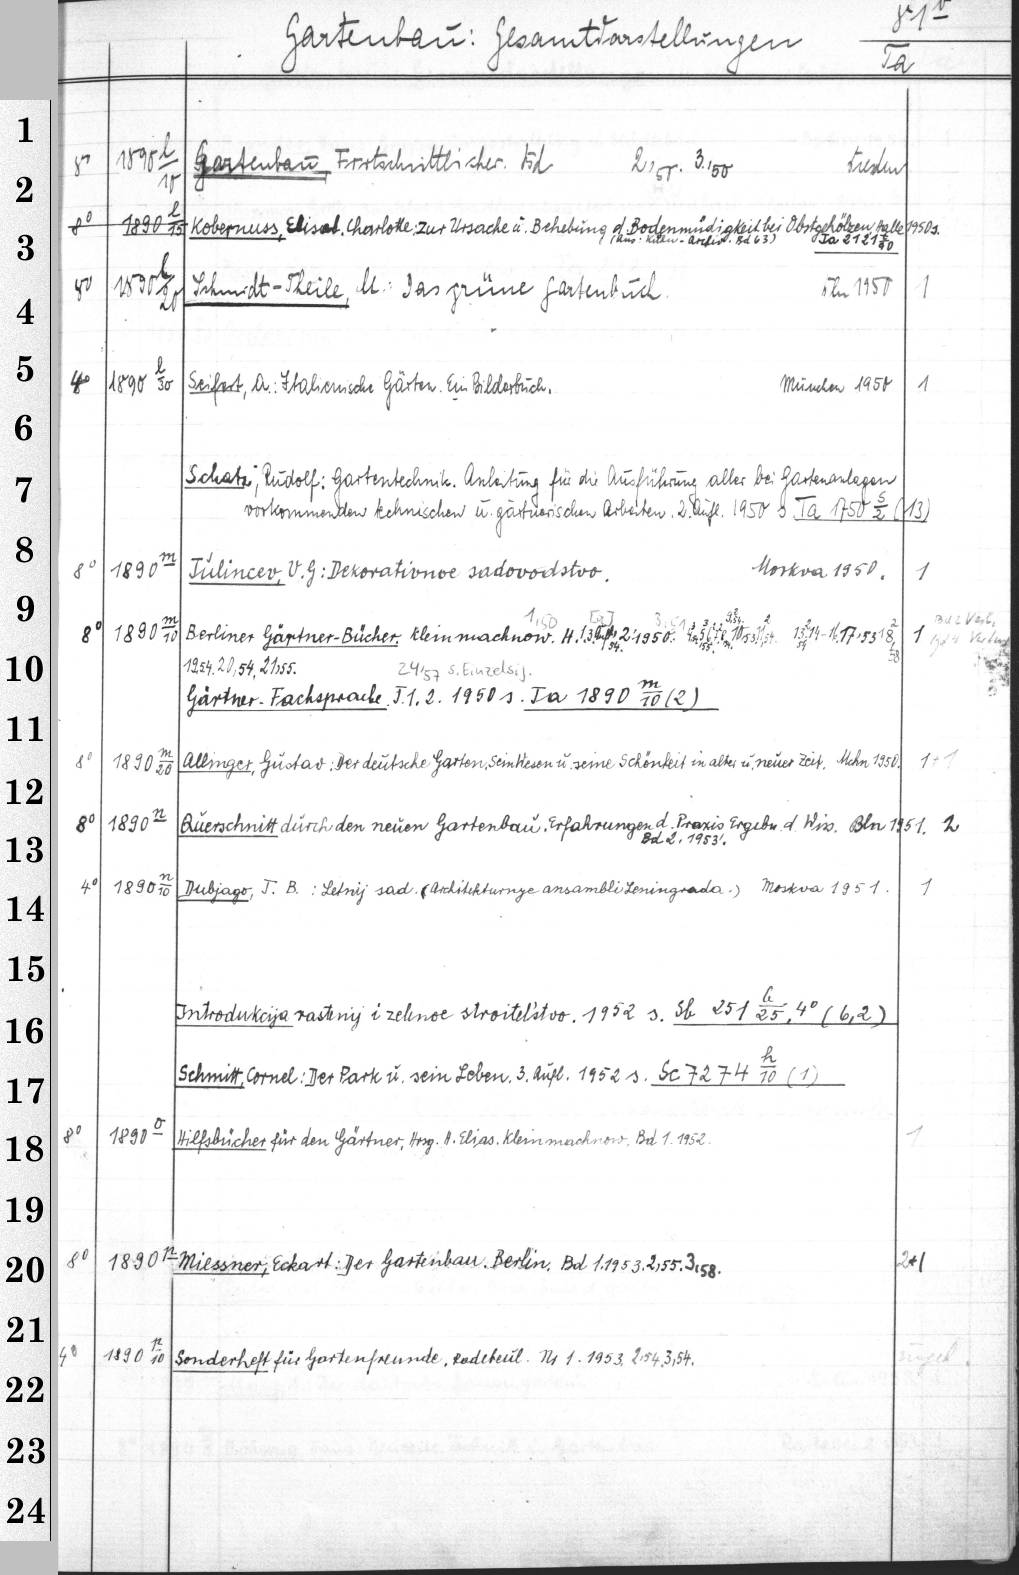 Gartenbau: Gesamtdarstellungen
Ta
1
8° 1890 l/10 Gartenbau, Fortschrittlicher. Bd 2,50. 3,50 Dresden
2
8° 1890 l/15 Kobernuss, Elisab. Charlotte: Zur Ursache u. Behebung d. Bodenmüdigkeit bei Obstgehölzen, Halle 1950 s.
3
(Aus: Kühn-Archiv. Bd 63) Ta 2121
8° 1890 l/20 Schmidt-Theile, M.: Das grüne Gartenbuch. Bln 1950 1
4
5
4° 1890 l/30 Seifert, A.: Italienische Gärten. Ein Bilderbuch. München 1950 1
6
Schatz, Rudolf: Gartentechnik. Anleitung für die Ausführung aller bei Gartenanlagen
7
vorkommenden technischen u. gärtnerischen Arbeiten. 2. Aufl. 1950 s. Ta 1750 s/2 (13)
8
8° 1890 m Tulincev, V. G: Dekorativnoe sadovodstvo. Moskva 1950. 1
9
1,50 3,51
8° 1890 m/10 Berliner Gärtner-Bücher, Kleinmachnow. H. 2. 1950. 17,53 1
10
1954. 20,54, 21,55. 24,57 s. Einzelsig.
Gärtner-Fachsprache. T. 1. 2. 1950 s. Ta 1890 m/10 (2)
11
8° 1890 m/20 Allinger, Gustav: Der deutsche Garten. Sein Wesen u. seine Schönheit in alter u. neuer Zeit. Mchn 1950. 1+1
12
8° 1890 n Querschnitt durch den neuen Gartenbau. Erfahrungen d. Praxis Ergebn. d. Wiss. Bln 1951. 2
13
Bd 2. 1953.
4° 1890 n/10 Dubjago, T. B.: Letnij sad. (Architekturnye ansambli Leningrada.) Moskva 1951. 1
14
15
Introdukcija rastenij i zelenoe stroitel'stvo. 1952 s. Sb 251 a/25, 4° (6,2)
16
Schmitt, Cornel: Der Park u. sein Leben. 3. Aufl. 1952 s. Sc 7274 h/10 (1)
17
8° 1890 o Hilfsbücher für den Gärtner, Hrsg. H. Elias. Kleinmachnow. Bd 1. 1952. 1
18
19
8° 1890 p Miessner, Eckart: Der Gartenbau. Berlin. Bd 1. 1953. 2,55. 3,58. 2+1
20
21
4° 1890 p/10 Sonderheft für Gartenfreunde. Radebeul. Nr 1. 1953. 2,54. 3,54.
22
23
24